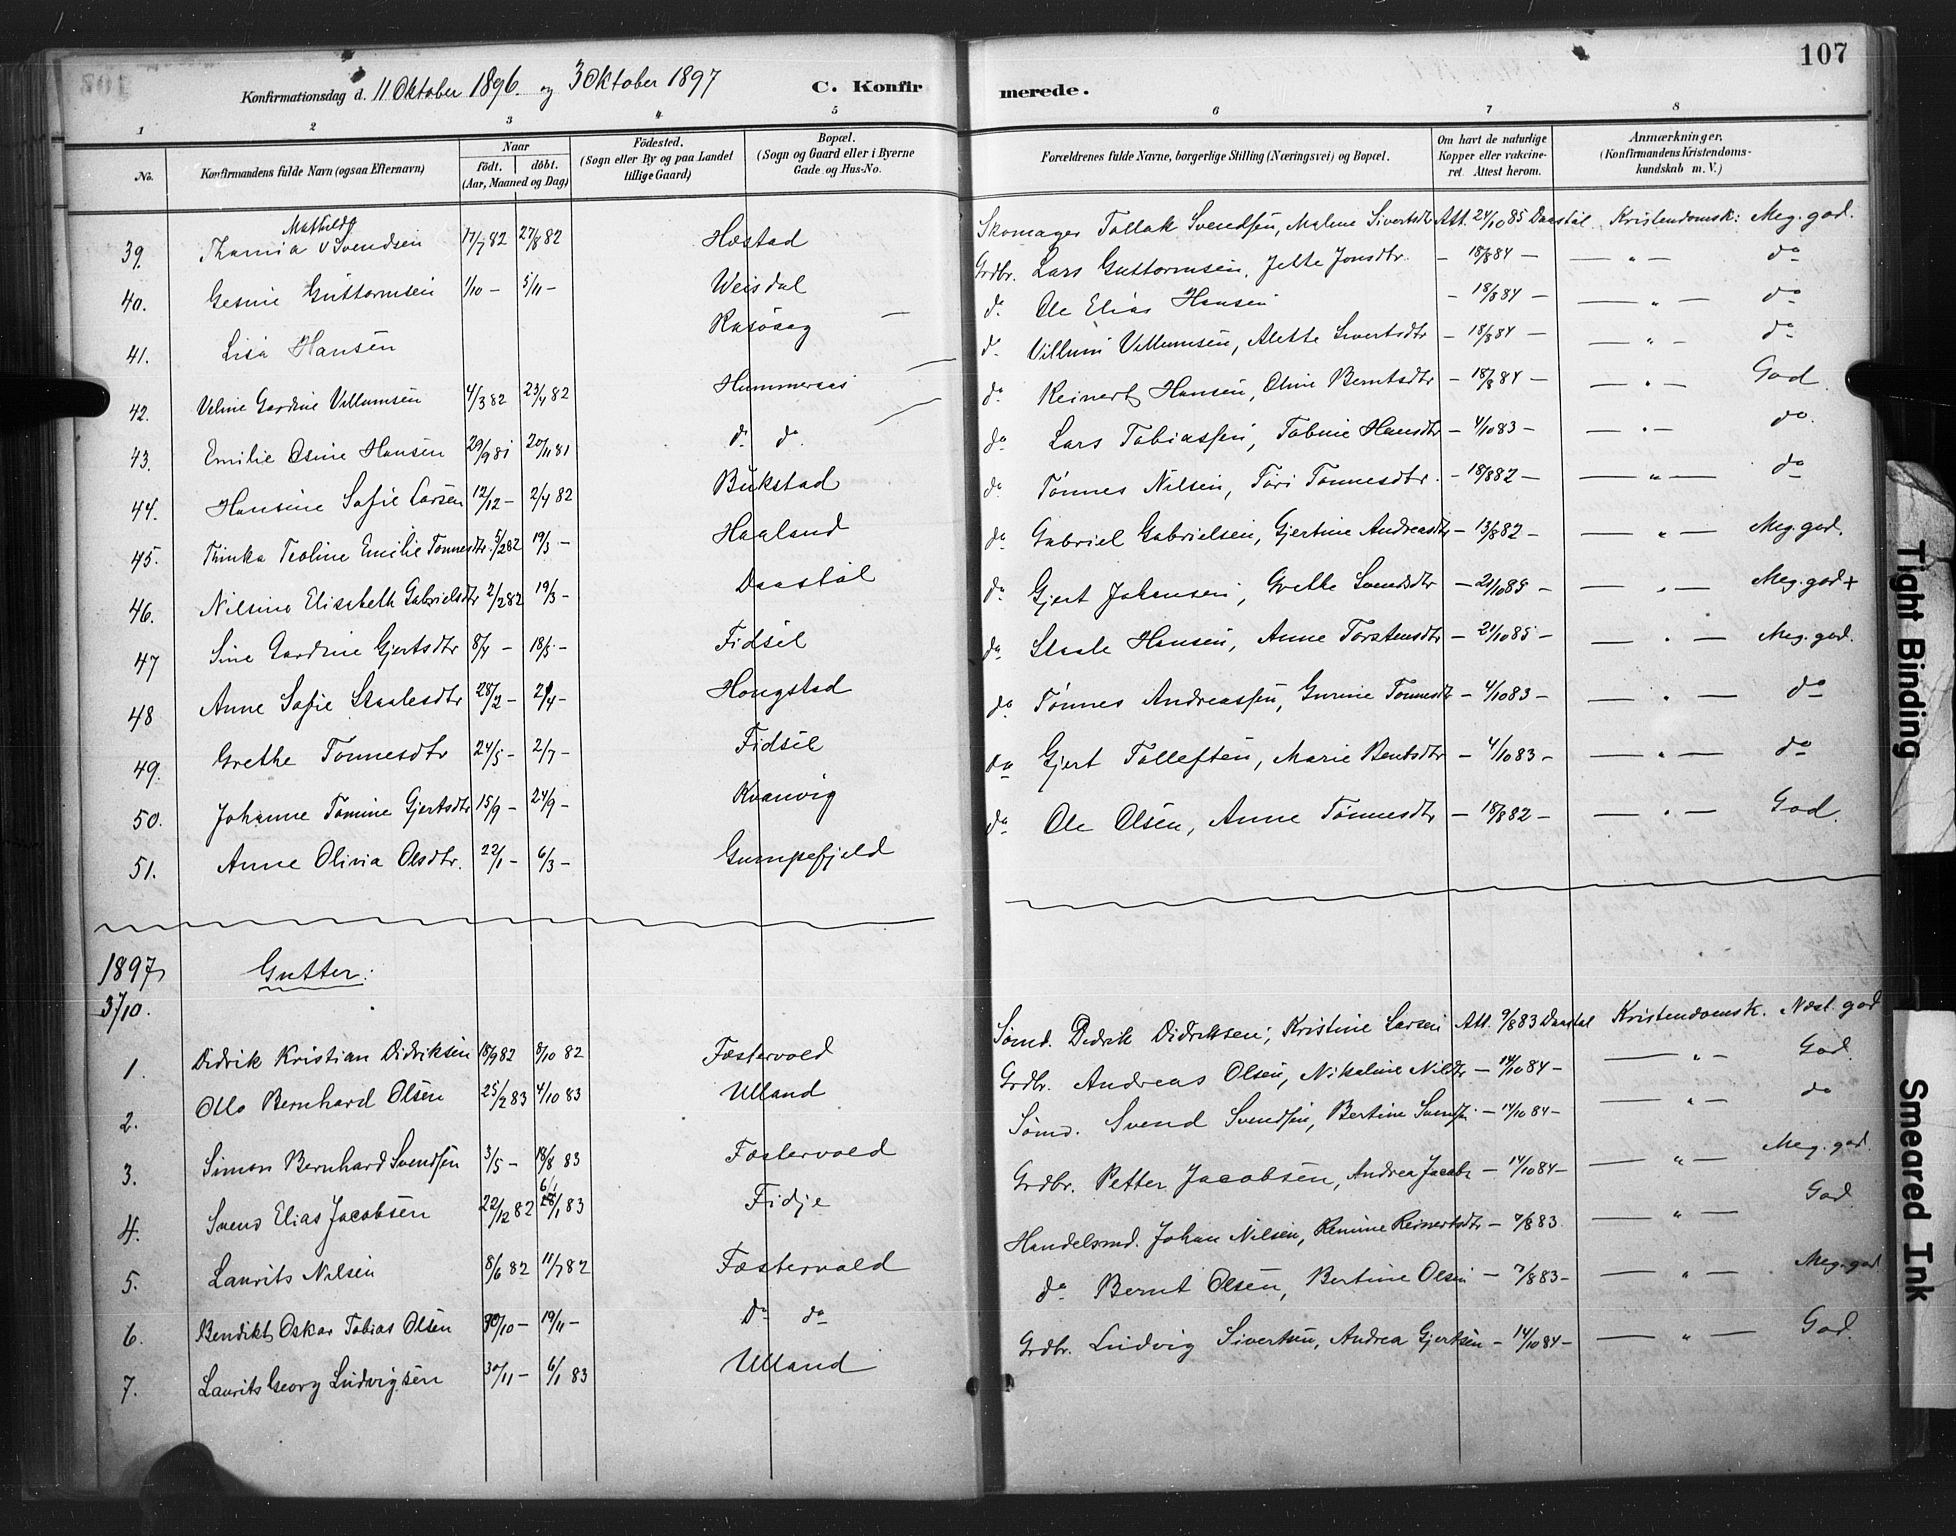 107
Konfirmationsdag d. 11 Oktober 1896. og 3 Oktober 1897 C. Konfirmerede.
1 2 3 4 5 6 7 8
No.
Konfirmandens fulde Navn (ogsaa Efternavn)
Naar
födt. döbt.
(Aar, Maaned og Dag)
Födested.
(Sogn eller By og paa Landet
tillige Gaard)
Bopæl.
(Sogn og Gaard eller i Byerne
Gade og Hus-No.
Forældrenes fulde Navne, borgerlige Stilling (Næringsvei) og Bopæl.
Om havt de naturlige
Kopper eller vakcine-
ret. Attest herom.
Anmærkninger.
(Konfirmandens Kristendoms-
kundskab m. V.)
Mathilde
39. Thamia V Svendsen 17/7 82 27/8 82 Hæstad Skomager Tollak Svendsen, Malene Sivertsdtr Att. 24/10 85 Daastøl Kristendomsk: Meg. god.
40. Gesine Guttormsen 1/10 – 5/11 – Weisdal Grdbr. Lars Guttormsen, Jette Jonsdtr. – 18/8 84 – — " — do
41. Lisa Hansen Rasövag — d. Ole Elias Hansen – 18/8 84 – — " — do
42. Veline Gardine Villumsen 4/3 82 23/4 82 Hummersas — d. Villum Villumsen, Alette Sivertsdtr – 18/8 84 – — " — do
43. Emilie Osine Hansen 29/9 81 20/11 81 d. d. — do Reinert Hansen, Oline Berntsdtr – 18/8 84 – — " — God
44. Hansine Sofie Larsen 12/12 – 2/4 82 Bukstad do Lars Tobiassen, Tobine Hansdtr – 4/10 83 – — " — do
45. Thinka Teoline Emilie Tønnesdtr. 5/2 82 19/3 – Haaland do Tønnes Nilsen, Tori Tønnesdtr. – 18/8 82 – — " — do
46. Nilsine Elisabeth Gabrielsdtr 2/2 82 19/3 – Daastøl do Gabriel Gabrielsen, Gjertine Andreasdtr – 13/8 82 – — " — Meg. god.
47 Sine Gardine Gjertsdtr 8/4 – 18/5 – Fidsel do Gjert Johansen, Grethe Svendsdtr – 21/10 85 – — " — Meg. god +
48 Anne Sofie Staalesdtr 28/2 – 2/4 – Hougstad do Staale Hansen, Anne Torstensdtr – 21/10 85 – — " — Meg. god.
49. Grethe Tønnesdtr 24/5 – 2/7 – Fidsel do Tønnes Andreassen, Gurine Tønnesdtr – 4/10 83 – — " — do
50. Johanne Tomine Gjertsdtr 15/9 – 24/9 – Kvanvig do Gjert Tolleften, Marie Bentsdtr – 4/10 83 – — " — do
51. Anne Olivia Olsdtr. 22/1 – 6/3 – Gumpefjeld do Ole Olsen, Anne Tønnesdtr – 18/8 82 – — " — God.
1897 Gutter:
3/10.
1. Didrik Kristian Didriksen 18/9 82 8/10 82 Fæstervold Sømd. Didrik Didriksen, Kristine Larsen Att. 9/8 83 Daastøl Kristendomsk. Næst. god
2. Otto Bernhard Olsen 25/2 83 4/10 83 Ulland Grdbr. Andreas Olsen, Nikoline Nilsdtr – 14/10 84 – — " — God.
3. Simon Bernhard Svendsen 3/5 – 18/8 83 Fæstervold Sømd. Svend Svendsen, Bertine Svendsn. – 14/10 84 – — " — do
4. Svend Elias Jacobsen 22/12 82 6/1 83 Fidje Grdbr. Petter Jacobsen, Andrea Jacobs – 14/10 84 – — " — Meg. god.
5. Laurits Nilsen 8/6 82 11/7 82 Fæstervold Handelsmd. Johan Nilsen, Remine Reinertsdtr – 7/8 83. — " — God
6. Bendikt Oskar Tobias Olsen 30/10 – 19/11 – Do do do Bernt Olsen, Bertine Olsen – 7/8 83 – — " — Meg. god.
7. Laurits Georg Ludvigsen 30/11 – 6/1 83 Ulland Grdbr. Ludvig Sivertsen, Andrea Gjertsen – 14/10 84 – — " — God.
Tight Binding
Smeared Ink